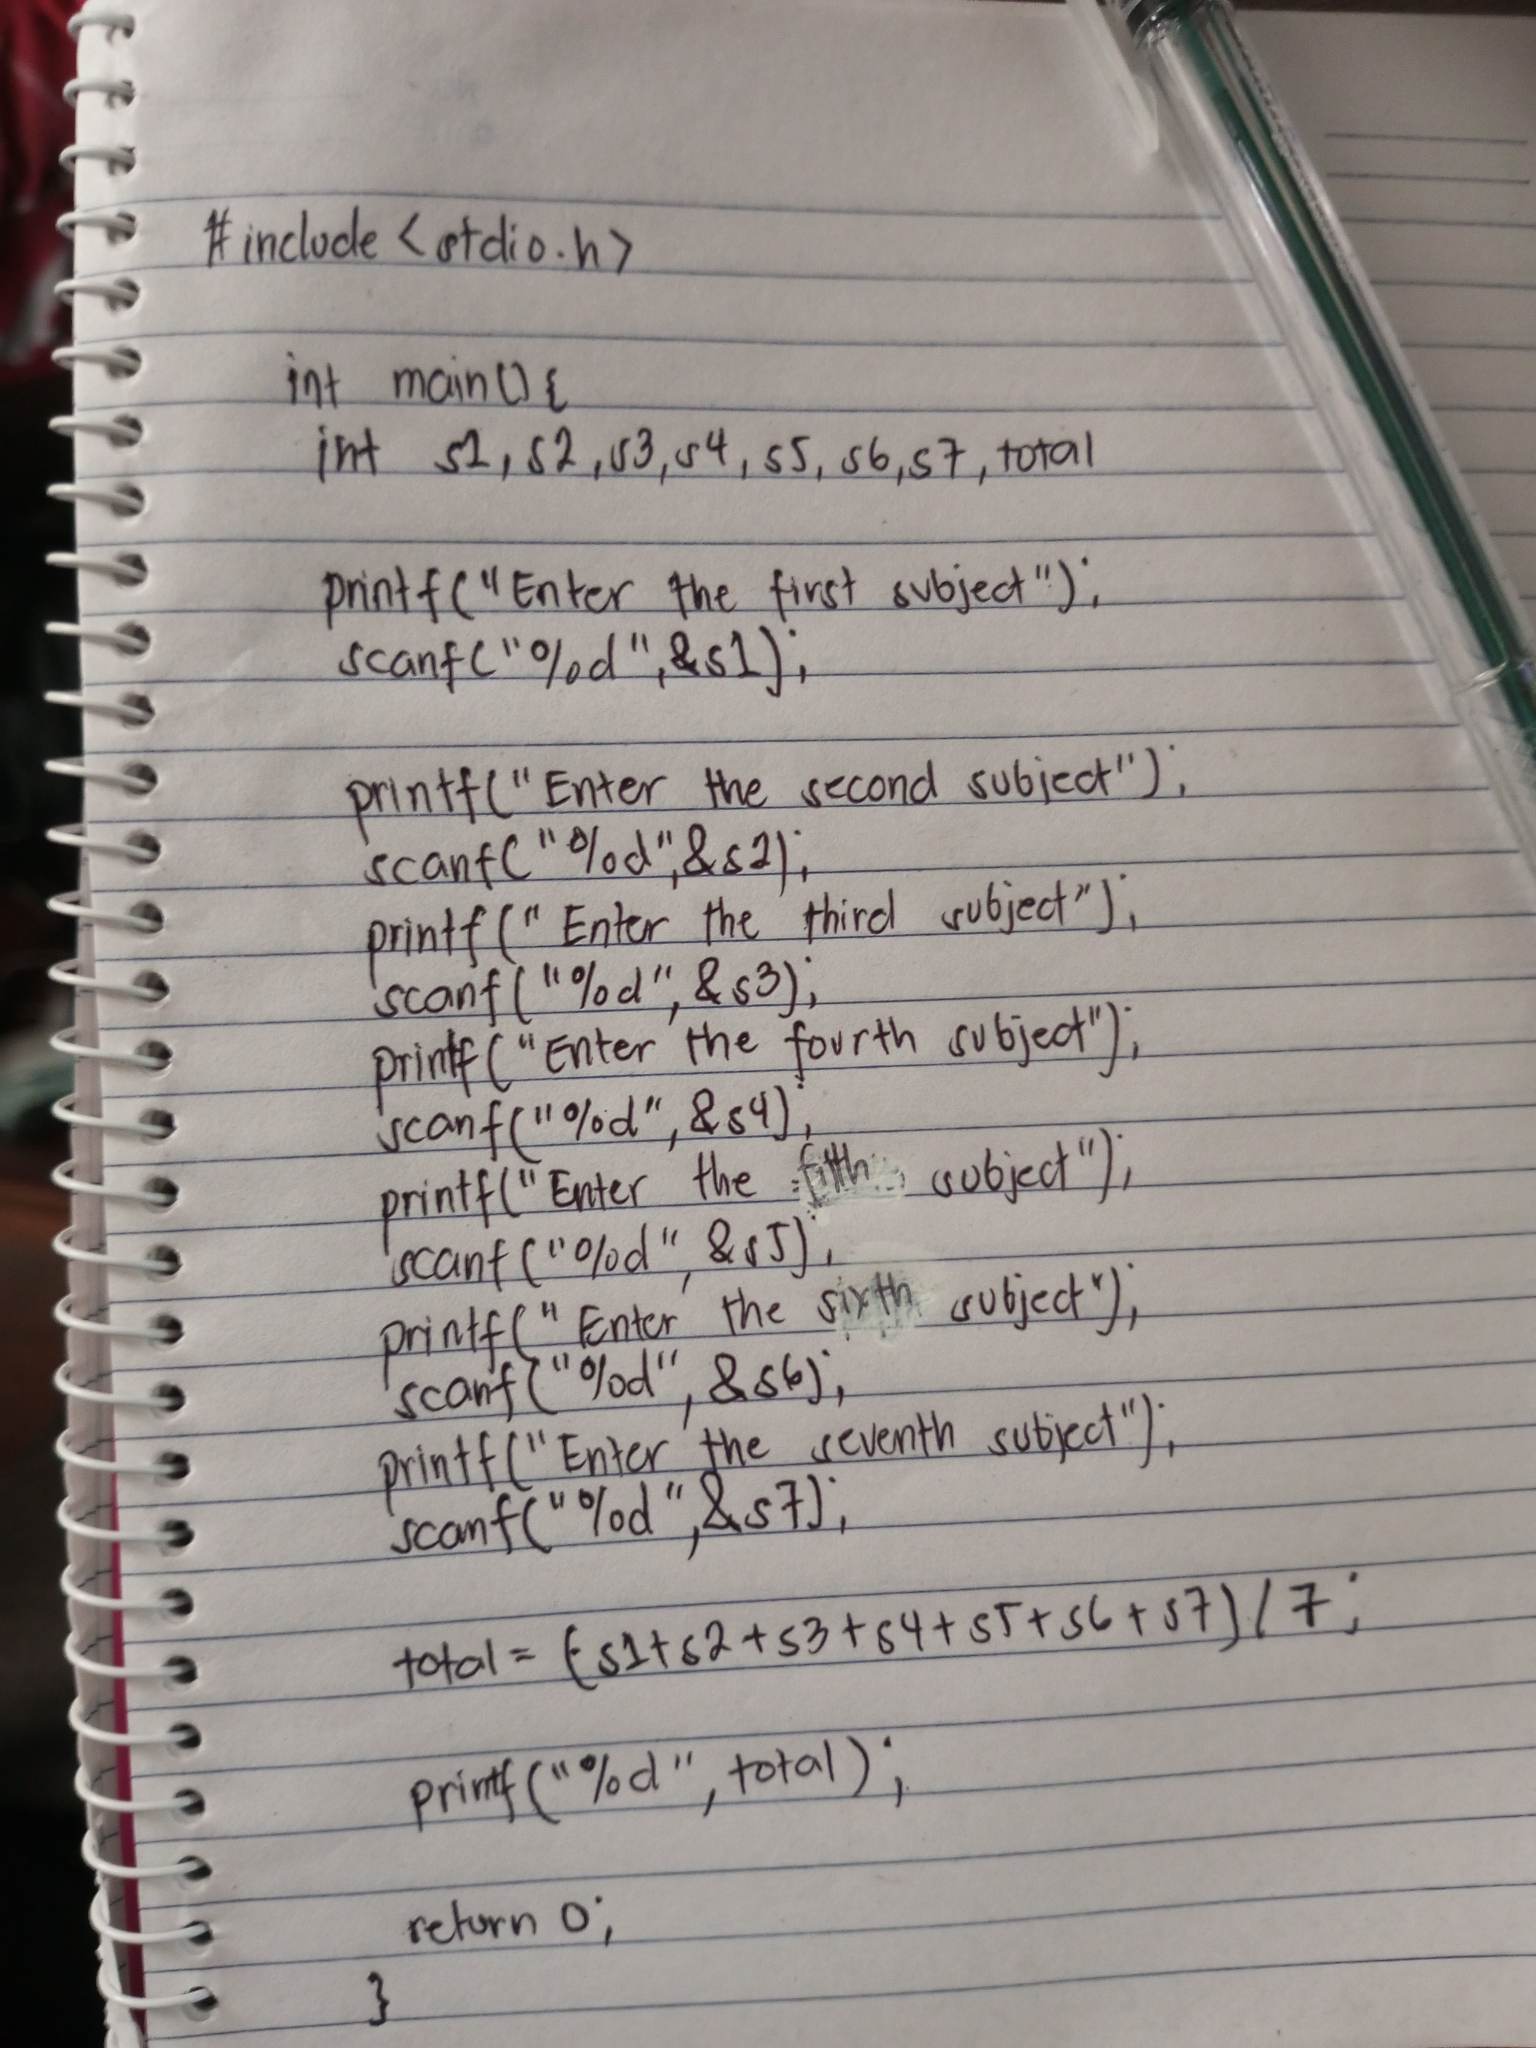 #include <stdio.h>
int main() {
int s1, s2, s3, s4, s5, s6, s7, total
printf("Enter the first subject");
scanf("%d", &s1);
printf("Enter the second subject");
scanf("%d", &s2);
printf("Enter the third subject");
scanf("%d", &s3);
printf("Enter the fourth subject");
scanf("%d", &s4);
printf("Enter the fifth subject");
scanf("%d", &s5);
printf("Enter the sixth subject");
scanf("%d", &s6);
printf("Enter the seventh subject");
scanf("%d", &s7);
total = (s1+s2+s3+s4+s5+s6+s7)/7;
printf("%d", total);
return 0;
}